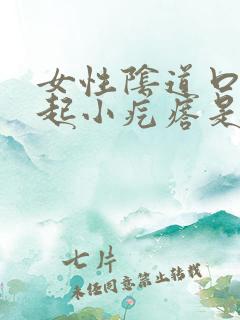 女性陰道口
起小疙瘩是
七片
未经同意禁止转载